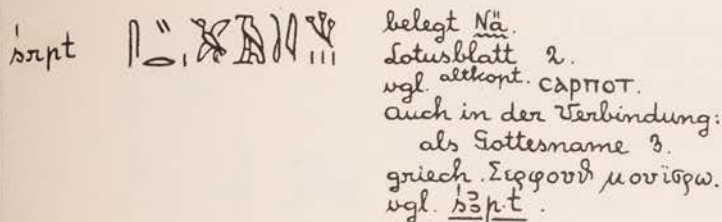 śrpt belegt Nä.
Lotusblatt 2.
vgl. altkopt. ⲥⲁⲣⲡⲟⲧ.
auch in der Verbindung:
als Gottesname 3.
griech. Σερφουϑ μουϊσρω.
vgl. śꜣp.t.